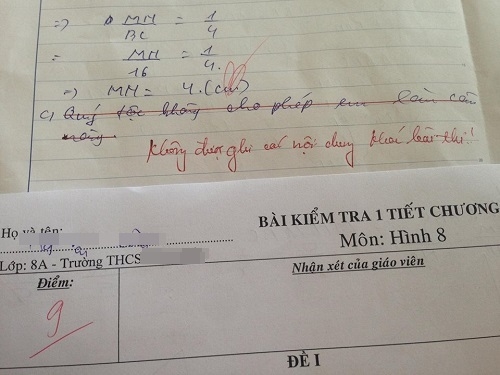 => MN/BC = 1/4
= MN/16 = 1/4.
=> MN = 4.(cm)
c, Quý tộc không cho phép em làm câu
này
Không được ghi các nội dung khác bài thi!
BÀI KIỂM TRA 1 TIẾT CHƯƠNG
Họ và tên:
Môn: Hình 8
Lớp: 8A - Trường THCS
Điểm:
Nhận xét của giáo viên
9
ĐỀ I